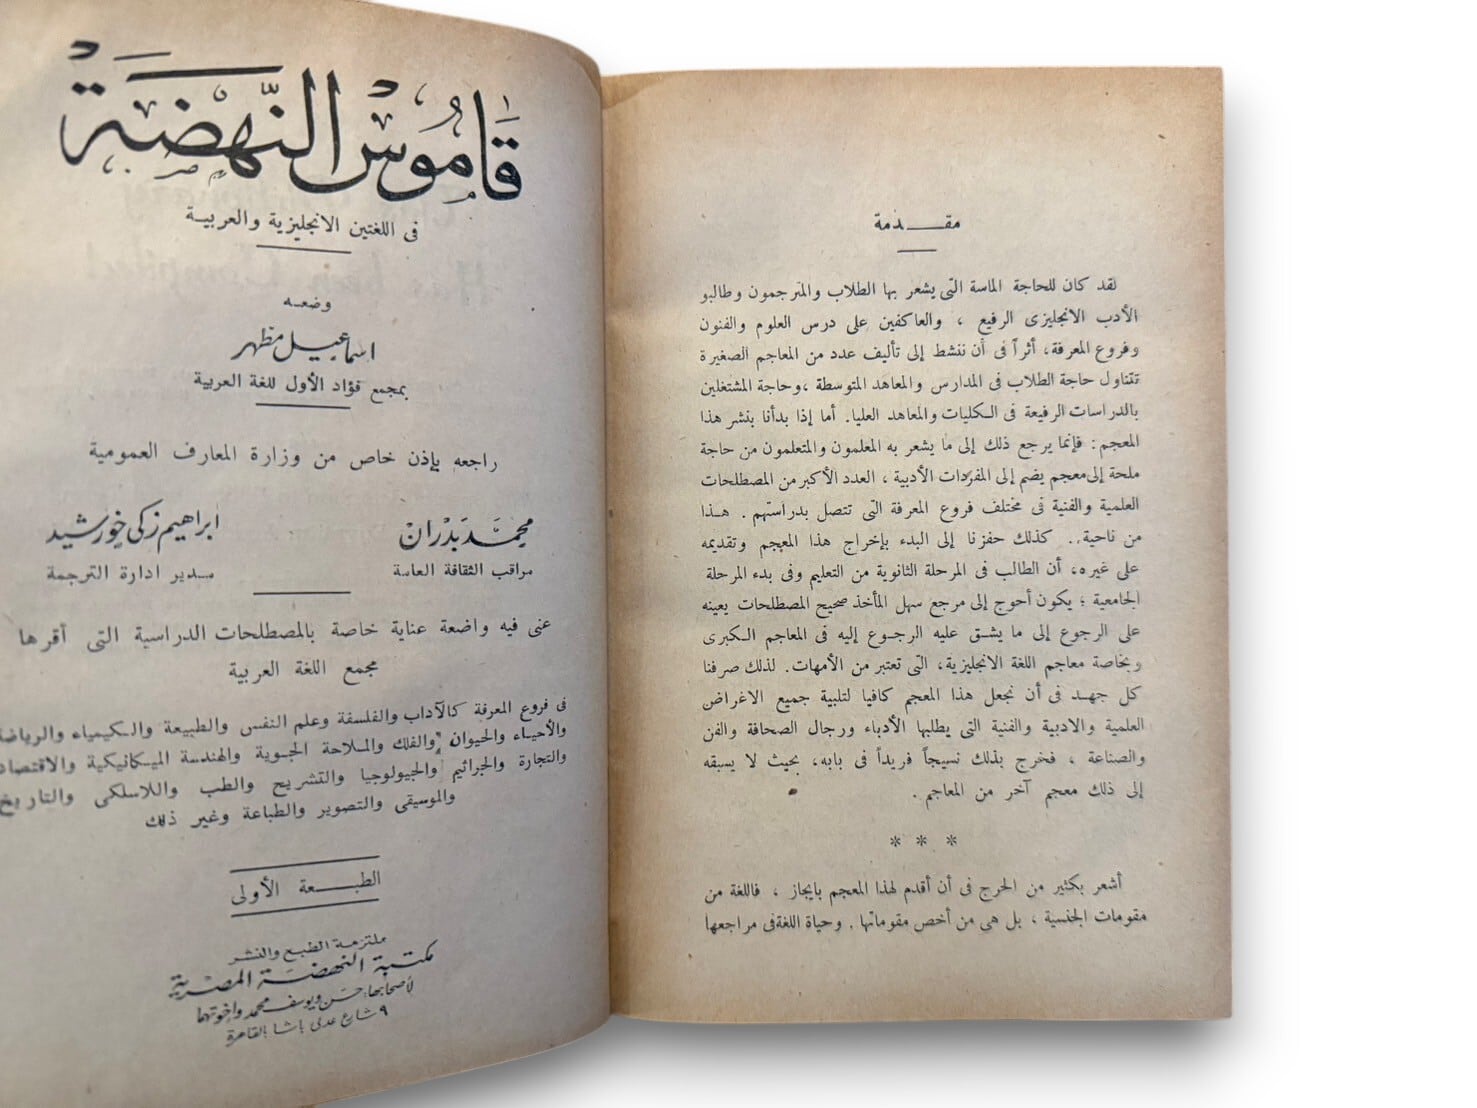 قَامُوسُ النَّهْضَةِ
فى اللغتين الانجليزية والعربية
وضعه
اسماعيل مظهر
بمجمع فؤاد الأول للغة العربية
راجعه بإذن خاص من وزارة المعارف العمومية
محمد بدران
ابراهيم زكى خورشيد
مراقب الثقافة العامة
مدير ادارة الترجمة
عنى فيه واضعة عناية خاصة بالمصطلحات الدراسية التى أقرها
مجمع اللغة العربية
فى فروع المعرفة كالآداب والفلسفة وعلم النفس والطبيعة والكيمياء والرياضة
والأحياء والحيوان والفلك والملاحة الجوية والهندسة الميكانيكية والاقتصاد
والتجارة والجراثيم والجيولوجيا والتشريح والطب واللاسلكى والتاريخ
والموسيقى والتصوير والطباعة وغير ذلك
الطبعة الأولى
ملتزمة الطبع والنشر
مكتبة النهضة المصرية
لأصحابها: حسن ويوسف محمد واخوتهما
٩ شارع عدلى باشا بالقاهرة
مقدمة
لقد كان للحاجة الماسة التى يشعر بها الطلاب والمترجمون وطالبو
الأدب الانجليزى الرفيع ، والعاكفين على درس العلوم والفنون
وفروع المعرفة، أثراً فى أن ننشط إلى تأليف عدد من المعاجم الصغيرة
تتناول حاجة الطلاب فى المدارس والمعاهد المتوسطة ،وحاجة المشتغلين
بالدراسات الرفيعة فى الكليات والمعاهد العليا. أما إذا بدأنا بنشر هذا
المعجم: فإنما يرجع ذلك إلى ما يشعر به المعلمون والمتعلمون من حاجة
ملحة إلى معجم يضم إلى المفردات الأدبية ، العدد الأكبر من المصطلحات
العلمية والفنية فى مختلف فروع المعرفة التى تتصل بدراستهم . هذا
من ناحية.. كذلك حفزنا إلى البدء بإخراج هذا المعجم وتقديمه
على غيره، أن الطالب فى المرحلة الثانوية من التعليم وفى بدء المرحلة
الجامعية ؛ يكون أحوج إلى مرجع سهل المأخذ صحيح المصطلحات يعينه
على الرجوع إلى ما يشق عليه الرجوع إليه فى المعاجم الكبرى
وبخاصة معاجم اللغة الانجليزية، التى تعتبر من الأمهات. لذلك صرفنا
كل جهد فى أن نجعل هذا المعجم كافيا لتلبية جميع الاغراض
العلمية والادبية والفنية التى يطلبها الأدباء ورجال الصحافة والفن
والصناعة ، فخرج بذلك نسيجاً فريداً فى بابه، بحيث لا يسبقه
إلى ذلك معجم آخر من المعاجم .
* * *
أشعر بكثير من الحرج فى أن أقدم لهذا المعجم بايجاز ، فاللغة من
مقومات الجنسية ، بل هى من أخص مقوماتها . وحياة اللغة فى مراجعها